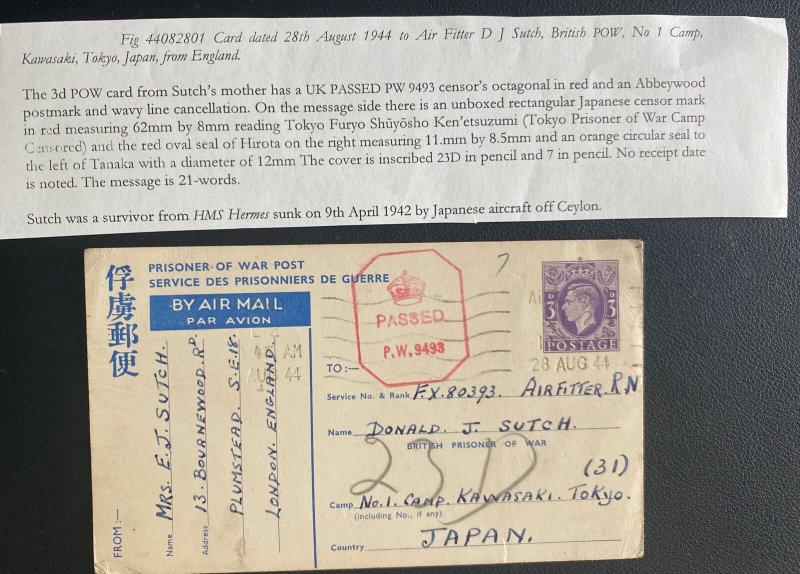 Fig 44082801 Card dated 28th August 1944 to Air Fitter D J Sutch, British POW, No 1 Camp,
Kawasaki, Tokyo, Japan, from England.
The 3d POW card from Sutch's mother has a UK PASSED PW 9493 censor's octagonal in red and an Abbeywood
postmark and wavy line cancellation. On the message side there is an unboxed rectangular Japanese censor mark
in red measuring 62mm by 8mm reading Tokyo Furyo Shūyōsho Ken'etsuzumi (Tokyo Prisoner of War Camp
Censored) and the red oval seal of Hirota on the right measuring 11.mm by 8.5mm and an orange circular seal to
the left of Tanaka with a diameter of 12mm The cover is inscribed 23D in pencil and 7 in pencil. No receipt date
is noted. The message is 21-words.
Sutch was a survivor from HMS Hermes sunk on 9th April 1942 by Japanese aircraft off Ceylon.
俘虜郵便
PRISONER OF WAR POST
SERVICE DES PRISONNIERS DE GUERRE
BY AIR MAIL
PAR AVION
FROM:—
Name MRS. E. J. SUTCH.
Address 13. BOURNEWOOD. RD.
PLUMSTEAD. S.E.18.
LONDON. ENGLAND.
AM
44
PASSED
P.W. 9493
7
3D 3D
POSTAGE
28 AUG 44
TO:—
Service No. & Rank FX. 80393. AIRFITTER. R.N
Name DONALD. J. SUTCH.
BRITISH PRISONER OF WAR
23D
(31)
Camp No. 1. CAMP. KAWASAKI. TOKYO.
(including No., if any)
Country JAPAN.